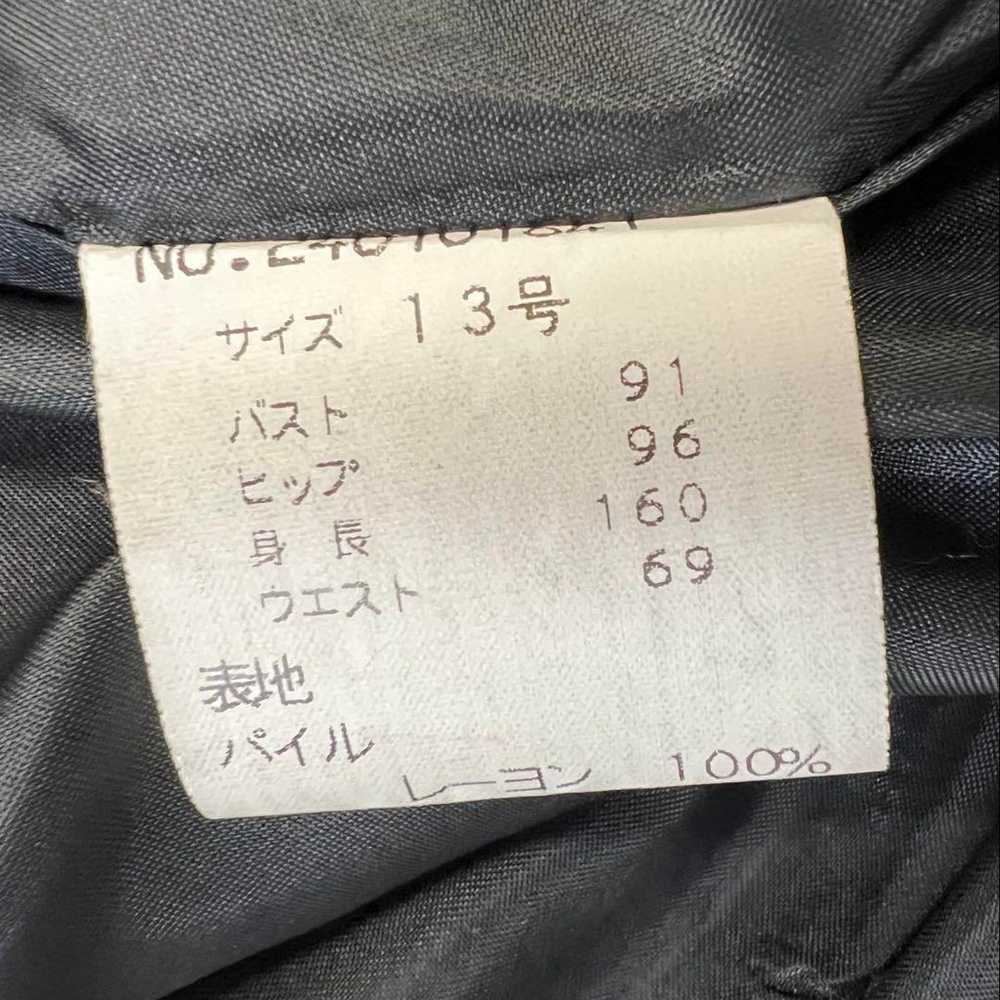 NO.
サイズ 13号
バスト 91
ヒップ 96
身長 160
ウエスト 69
表地
パイル
レーヨン 100%